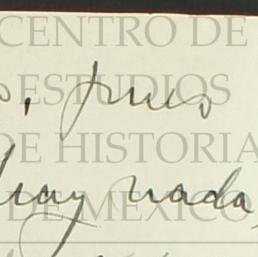 CENTRO DE
ESTUDIOS
s, pues
DE HISTORIA
hay nada,
DE MEXICO